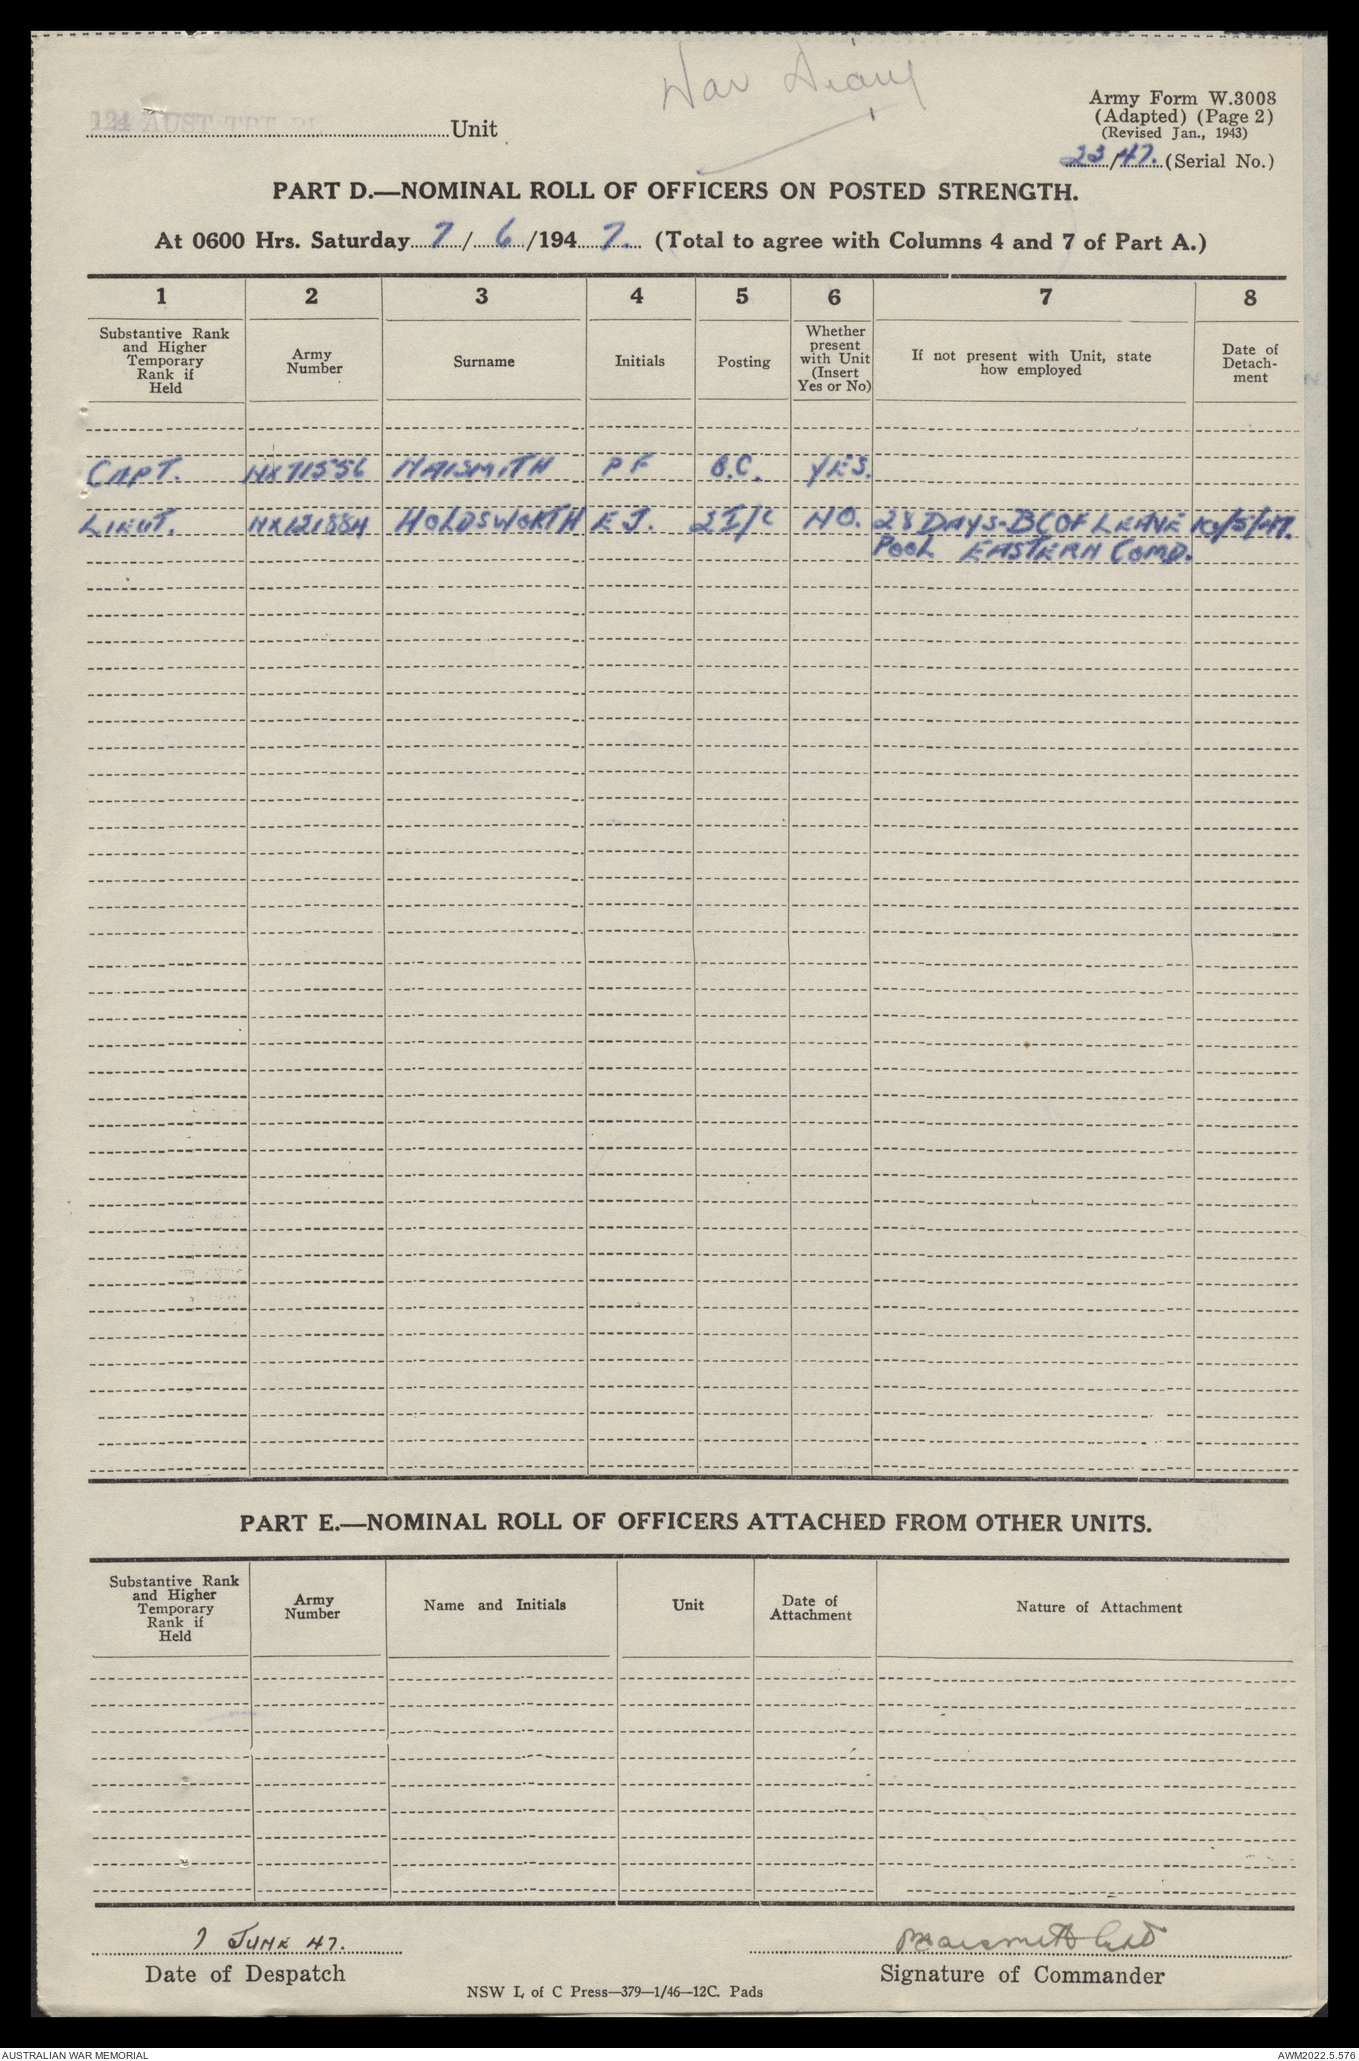 War Diary
Army Form W.3008
(Adapted) (Page 2)
(Revised Jan., 1943)
124 AUST TPT PL Unit
23/47. (Serial No.)
PART D.—NOMINAL ROLL OF OFFICERS ON POSTED STRENGTH.
At 0600 Hrs. Saturday 7/6/1947. (Total to agree with Columns 4 and 7 of Part A.)
1 2 3 4 5 6 7 8
Substantive Rank and Higher Temporary Rank if Held
Army Number
Surname
Initials
Posting
Whether present with Unit (Insert Yes or No)
If not present with Unit, state how employed
Date of Detach-ment
CAPT. NX71556 NAISMITH P F O.C. YES.
LIEUT. HOLDSWORTH E J. 2I/C NO. 28 DAYS-BCOF LEAVE /5/47.
POOL EASTERN COMD.
PART E.—NOMINAL ROLL OF OFFICERS ATTACHED FROM OTHER UNITS.
Substantive Rank and Higher Temporary Rank if Held
Army Number
Name and Initials
Unit
Date of Attachment
Nature of Attachment
7 JUNE 47.
Naismith Capt
Date of Despatch
Signature of Commander
NSW L of C Press—379—1/46—12C. Pads
AUSTRALIAN WAR MEMORIAL
AWM2022.5.576